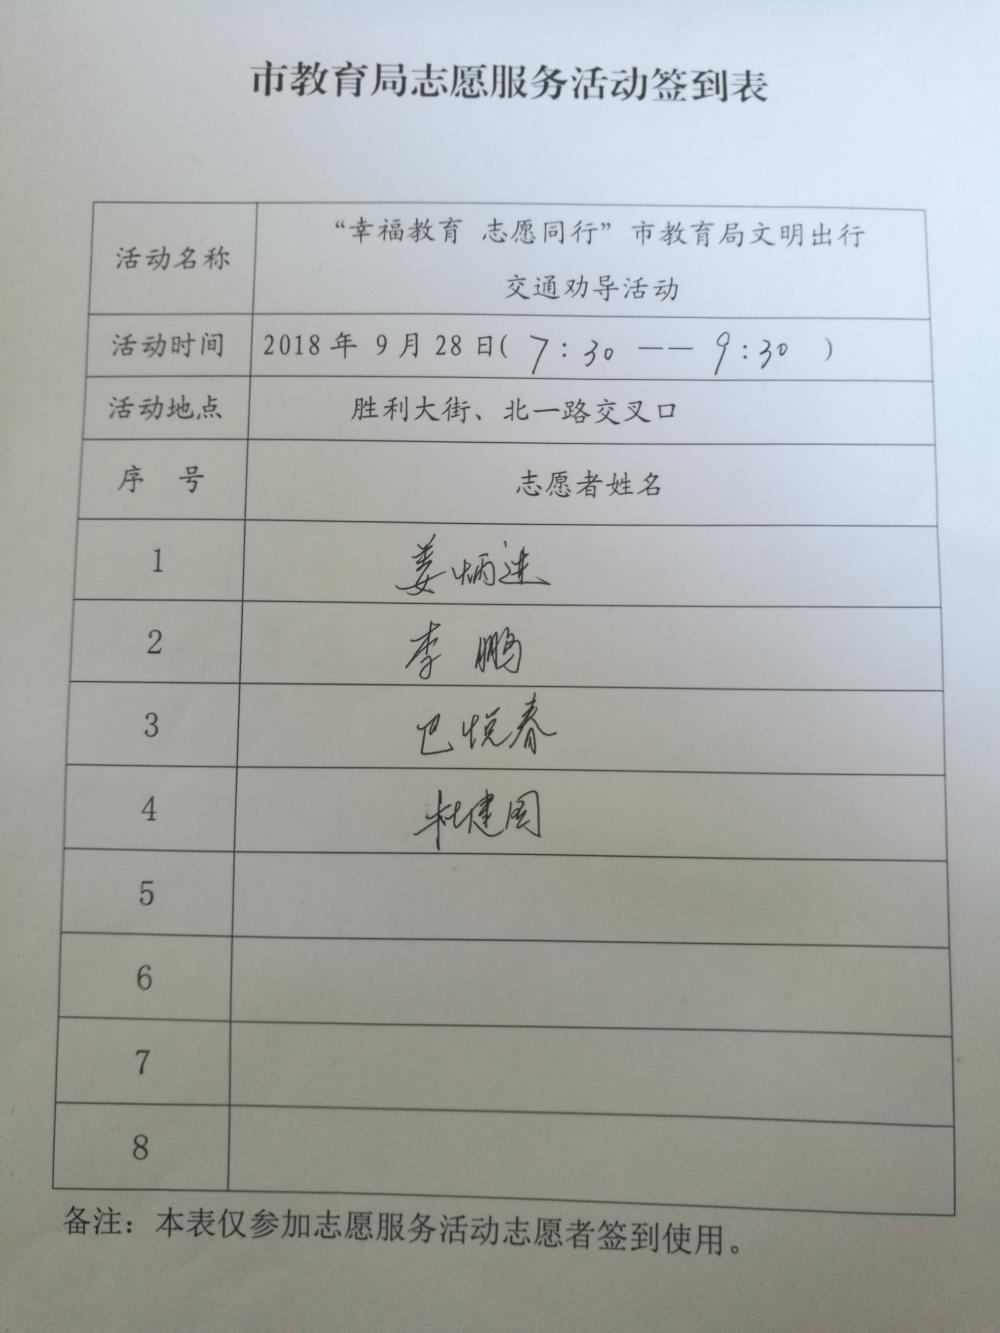 市教育局志愿服务活动签到表
活动名称 “幸福教育 志愿同行”市教育局文明出行
交通劝导活动
活动时间 2018年 9月28日( 7:30 —— 9:30 )
活动地点 胜利大街、北一路交叉口
序 号 志愿者姓名
1 姜炳进
2 李鹏
3 巴悦春
4 杜建国
5
6
7
8
备注：本表仅参加志愿服务活动志愿者签到使用。